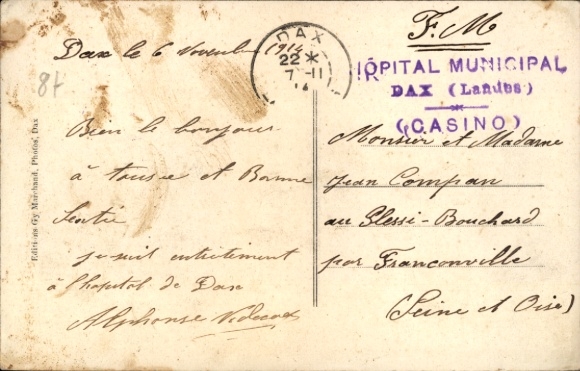 F. M
Dax le 6 Novembre 1914
DAX
22 *
7-11
14
HÔPITAL MUNICIPAL
DAX (Landes)
(CASINO)
8f
Editions Gy Marchand, Photos, Dax
Bien le bonjour
à tousse et Bonne
Sentée
je suit entritiment
à l'hopital de Dax
Alphonse
Monsieur et Madame
Jean Compan
au Plessi-Bouchard
par Franconville
(Seine et Oise)